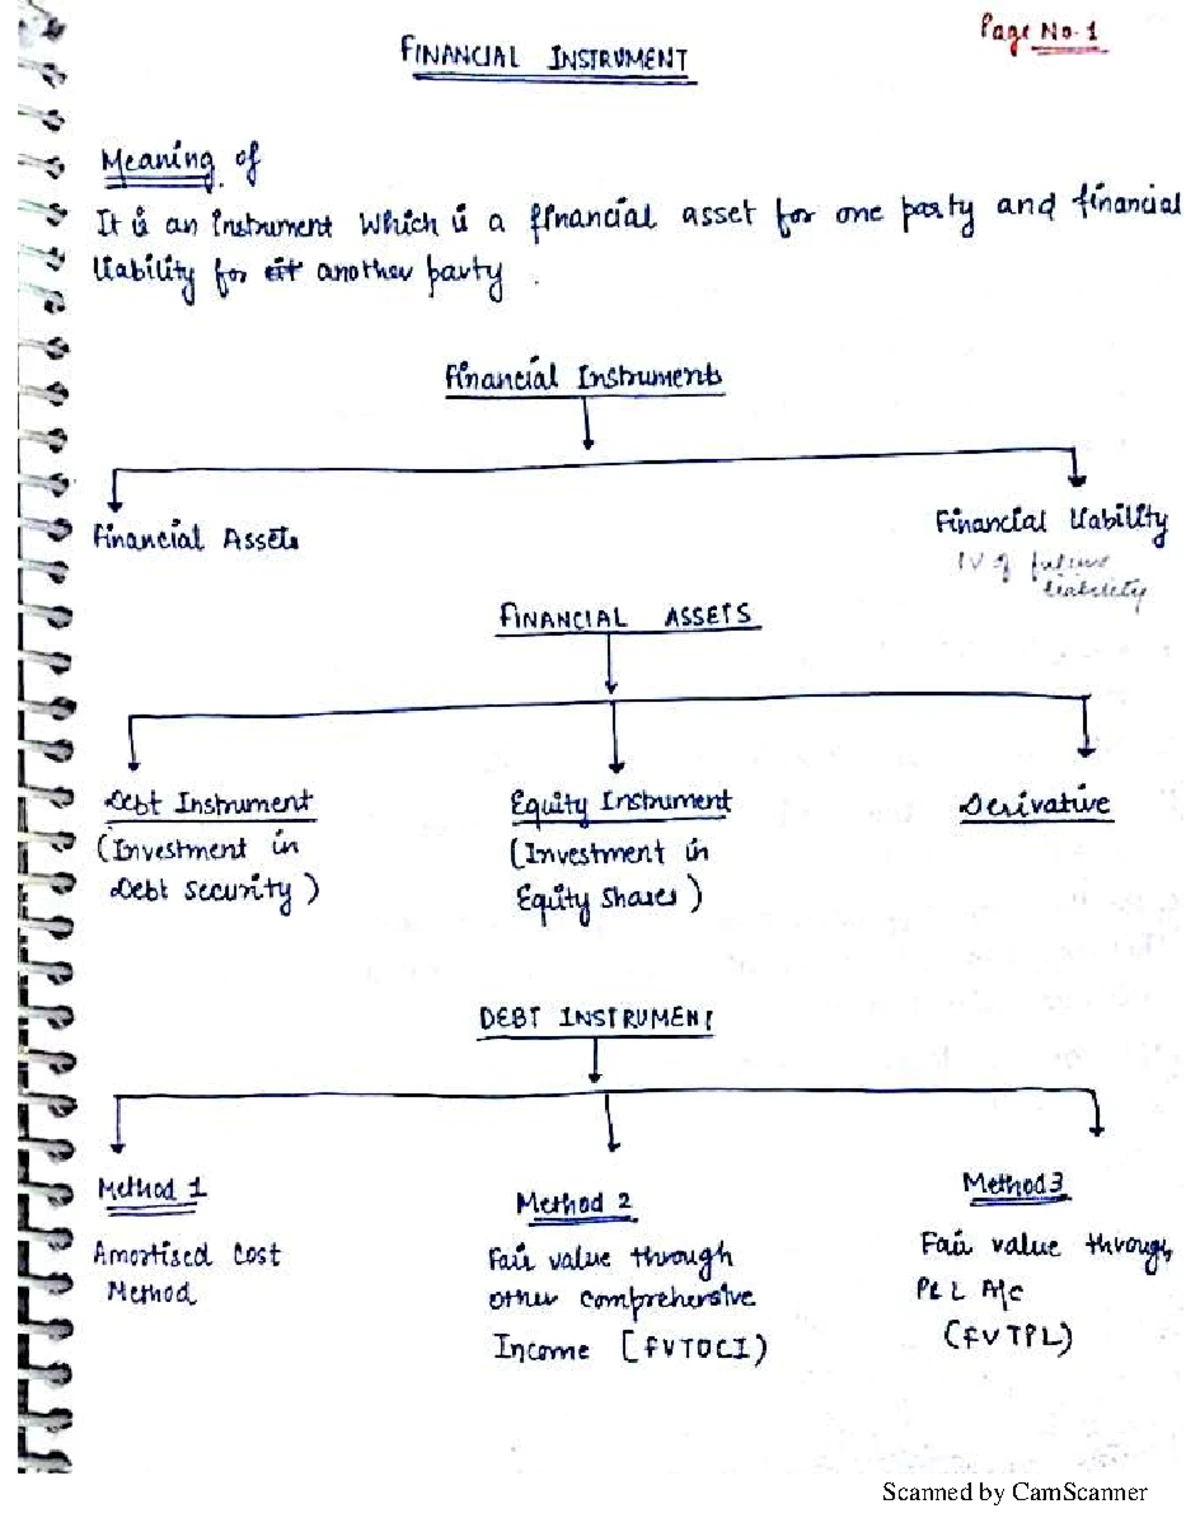 Page No. 1
FINANCIAL INSTRUMENT
Meaning of
It is an instrument which is a financial asset for one party and financial
liability for another party.
Financial Instruments
Financial Assets
Financial liability
of future
liability
FINANCIAL ASSETS
Debt Instrument
Equity Instrument
Derivative
(Investment in
Debt security)
(Investment in
Equity shares)
DEBT INSTRUMENT
Method 1
Method 2
Method 3
Amortised cost
Method
Fair value through
other comprehensive
Income [FVTOCI)
Fair value through
P & L A/c
(FVTPL)
Scanned by CamScanner